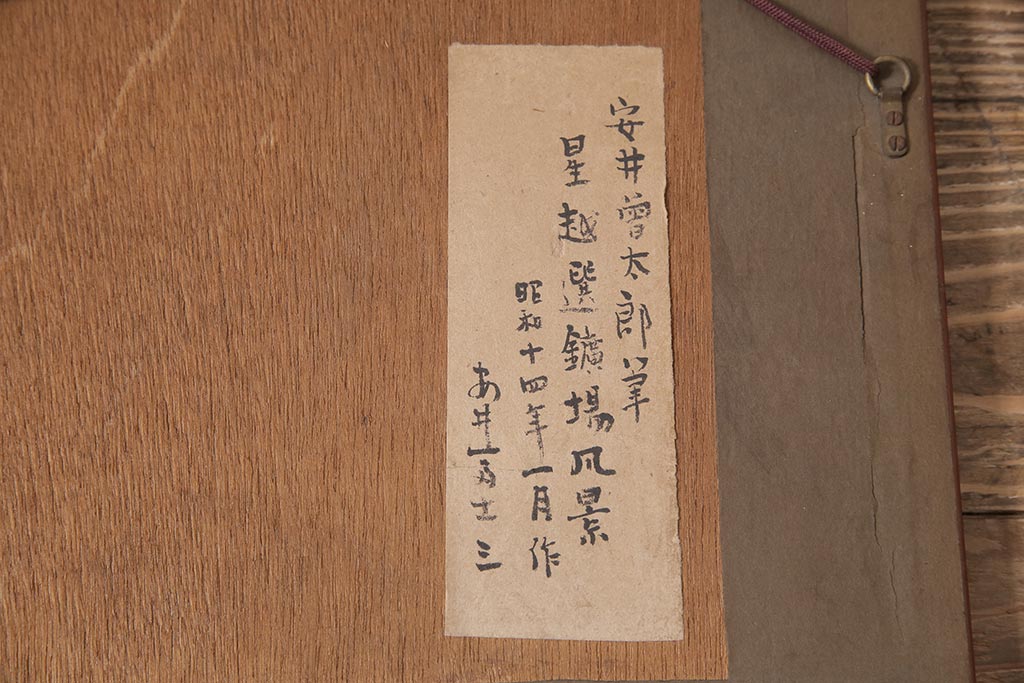 安井曾太郎筆
星越選鑛場風景
昭和十四年一月作
井 三